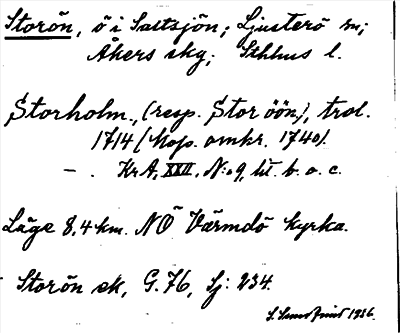 Storön, ö i Saltsjön; Ljusterö sn;
Åkers skg; Sthlms l.
Storholm., (resp. Stor öön), trol.
1714 (Kop. omkr. 1740).
— . Kr A, XXII, N:o 9, lit. b. o. c.
Läge 8,4 km. NÖ Värmdö kyrka.
Storön ek, G. 76, Sj: 234.
1936.